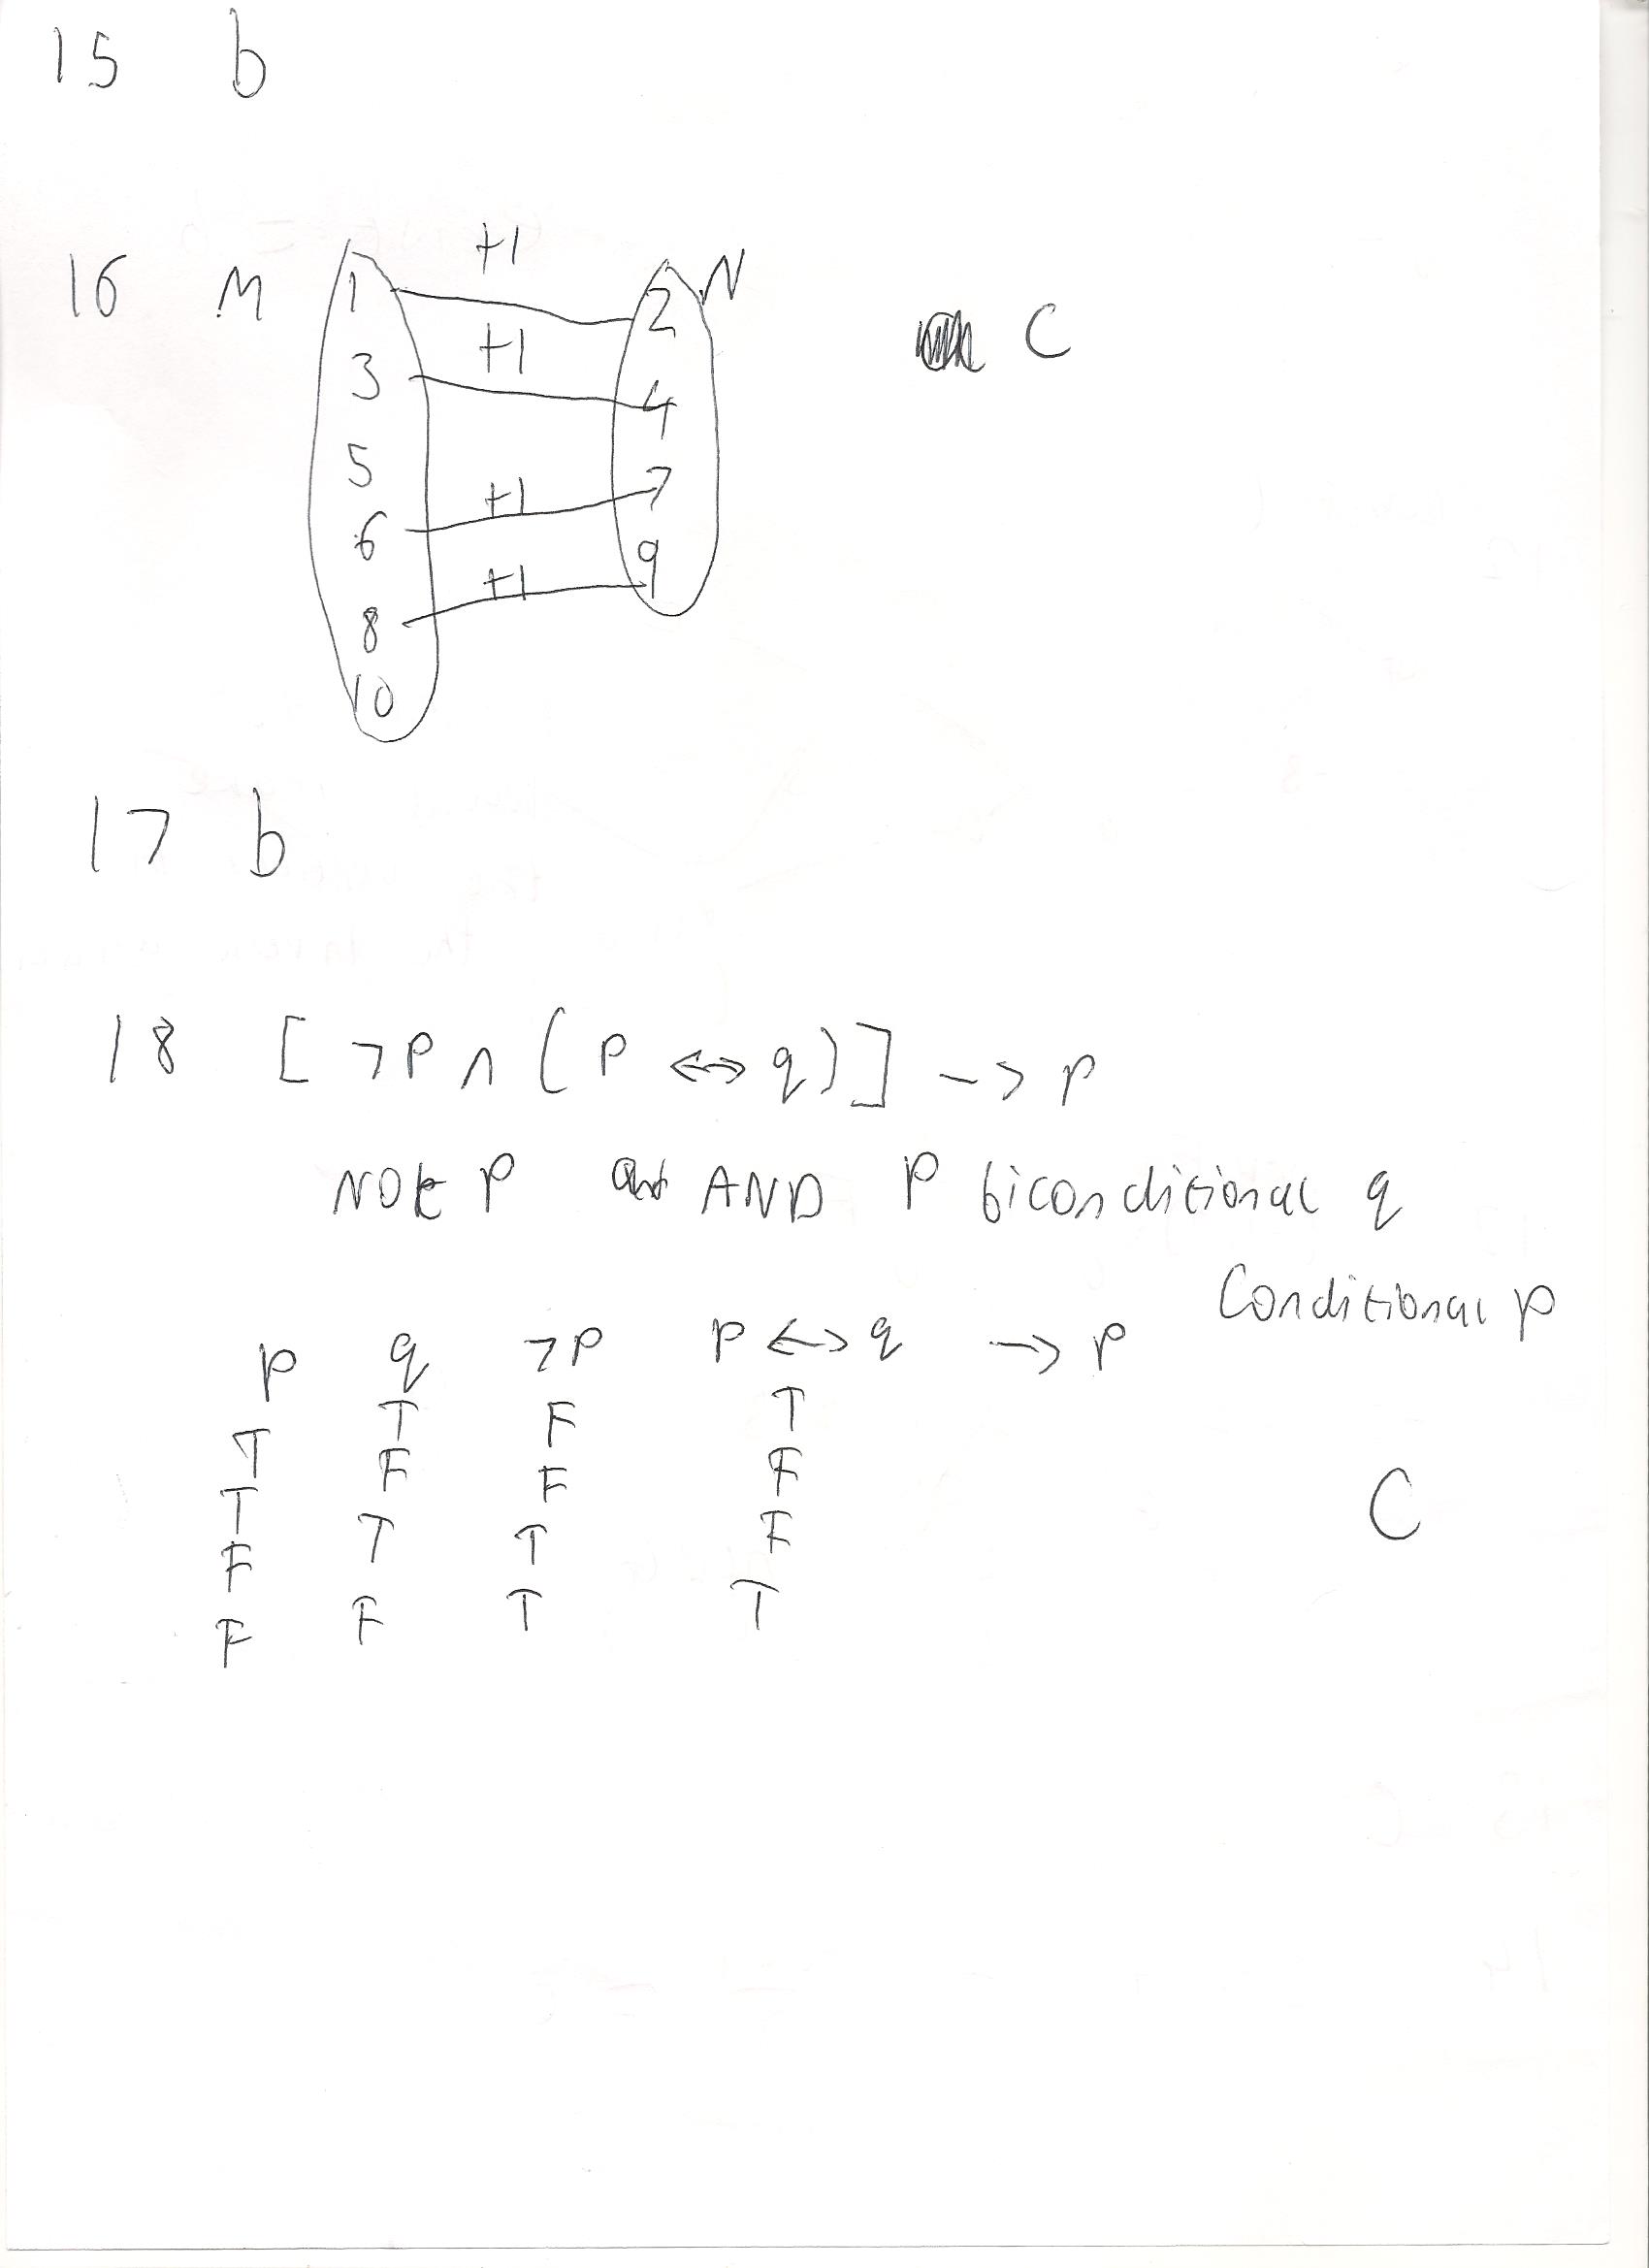 15 b
16 M 1 +1 2 N C
3 +1 4
5
6 +1 7
8 +1 9
10
17 b
18 [¬p∧(p ↔ q)] → p
NOt p AND p biconditional q
Conditional p
p q ¬p p ↔ q → p
T T F T
T F F F
F T T F
F F T T
C